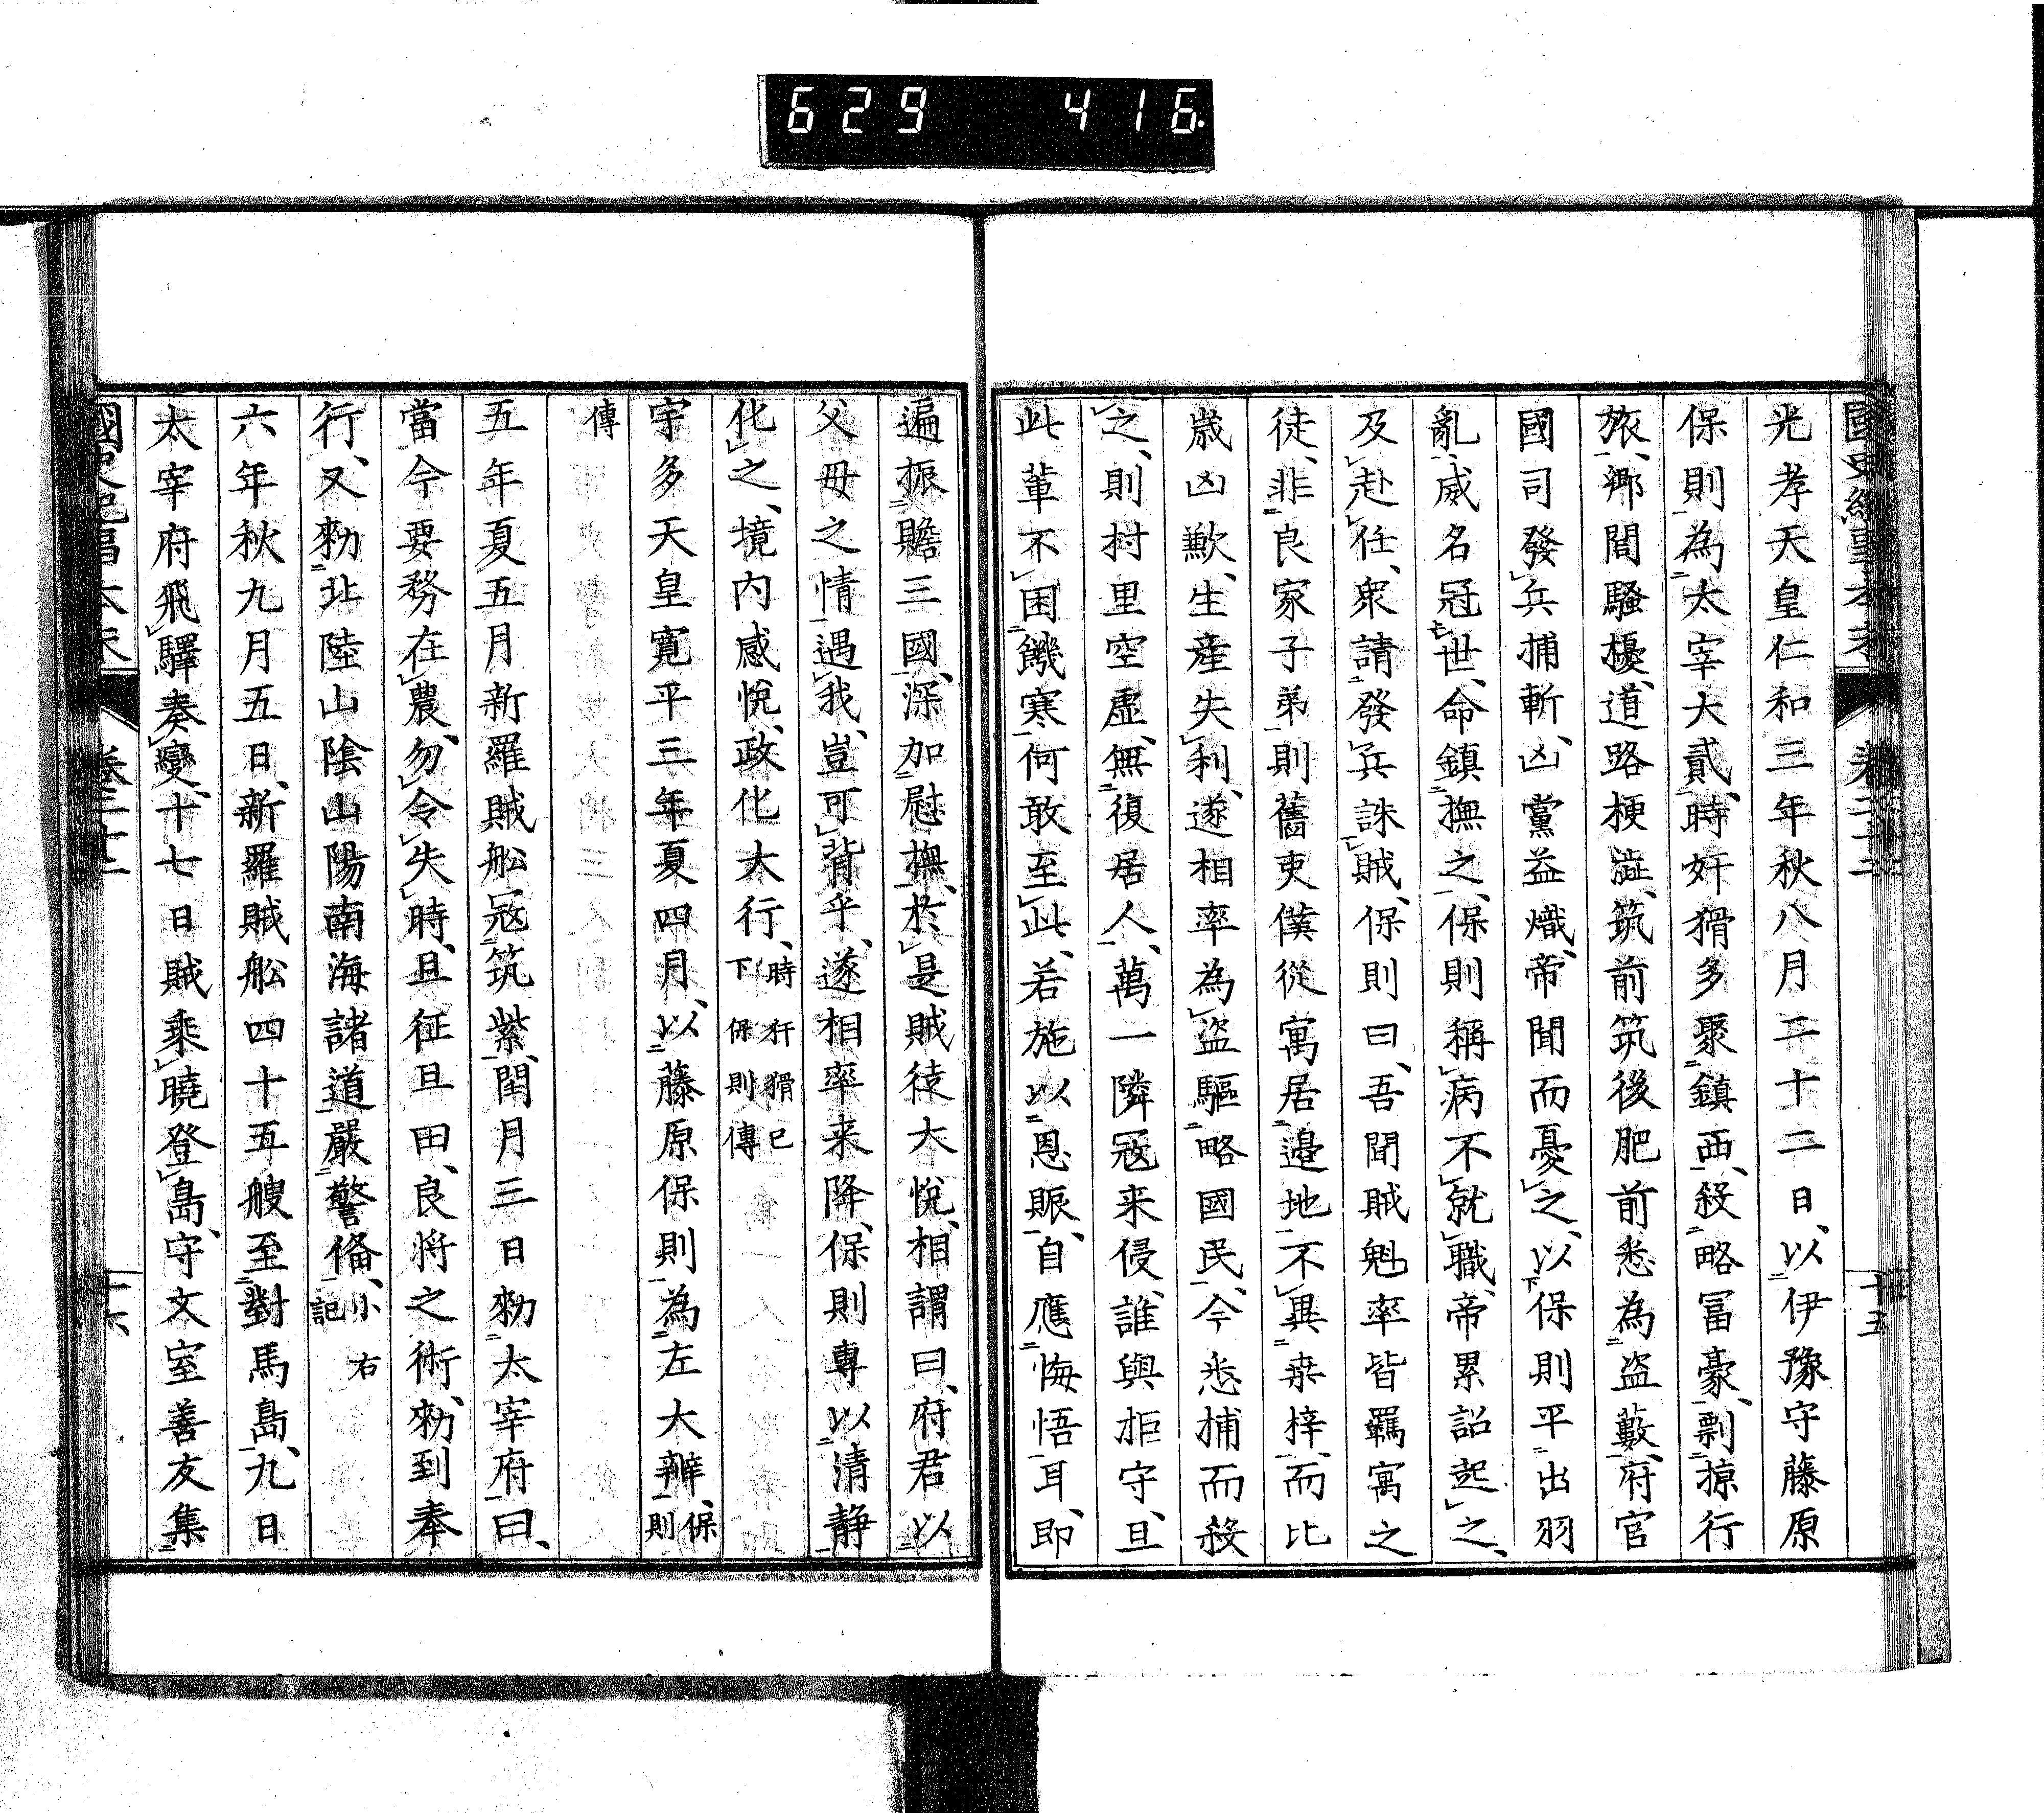 629 416.
國史紀事本末 卷二十二 十五
光孝天皇仁和三年秋八月二十二日、以伊豫守藤原
保則為太宰大貳、時奸猾多聚鎮西、殺略冨豪、剽掠行
旅、鄉閭騷擾、道路梗澁、筑前筑後肥前悉為盗藪、府官
國司發兵捕斬、凶黨益熾、帝聞而憂之、以保則平出羽
亂、威名冠世、命鎮撫之、保則稱病不就職、帝累詔起之、
及赴任、衆請發兵誅賊、保則曰、吾聞賊魁率皆羈寓之
徒、非良家子弟、則舊吏僕從寓居邉地、不異桒梓、而比
歲凶歉、生産失利、遂相率為盗驅略國民、今悉捕而殺
之、則村里空虛、無復居人、萬一隣冦来侵、誰與拒守、且
此輩不困饑寒、何敢至此、若施以恩賑、自應悔悟耳、即
遍振贍三國、深加慰撫、於是賊徒大悅、相謂曰、府君以
父母之情遇我、豈可背乎、遂相率来降、保則專以清静
化之、境内感悅、政化大行、時奸猾已下保則傳
宇多天皇寛平三年夏四月、以藤原保則為左大辨、保則
傳
五年夏五月新羅賊舩冦筑紫、閏月三日勑太宰府曰、
當今要務在農、勿令失時、且征且田、良将之術、勑到奉
行、又勑北陸山陰山陽南海諸道嚴警俻、小右記
六年秋九月五日、新羅賊舩四十五艘至對馬島、九日
太宰府飛驛奏變、十七日賊乘曉登島、守文室善友集
國史紀事本末 卷二十二 十六